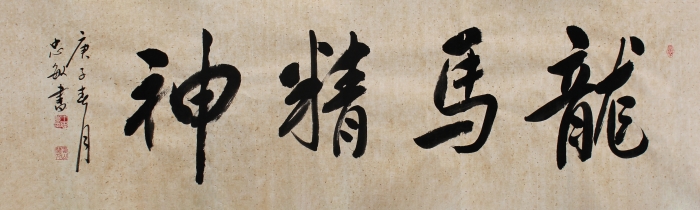 龍馬精神
庚子春月
忠敏書